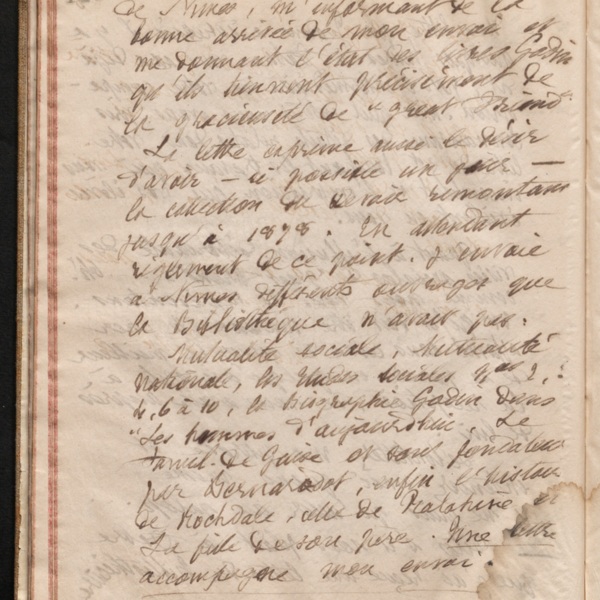 de Nîmes, m'informant de la
bonne arrivée de mon envoi et
me donnant l'état des livres Godin
qu'ils tiennent précisément de
la gracieuseté de "great friend"
La lettre exprime aussi le désir
d'avoir — si possible un jour —
la collection du Devoir remontant
jusqu'à 1878. En attendant
règlement de ce point. J'envoie
à Nîmes différents ouvrages que
la Bibliothèque n'avait pas.
Mutualité sociale, Mutualité
Nationale, les Etudes sociales nos 2,
4, 6 à 10, la biographie Godin dans
"Les hommes d'aujourd'hui. Le
Famil. de Guise et son fondateur
par Bernardot, enfin l'histoire
de Rochdale, celle de Ralahine et
La fille de son père. Une lettre
accompagne mon envoi.